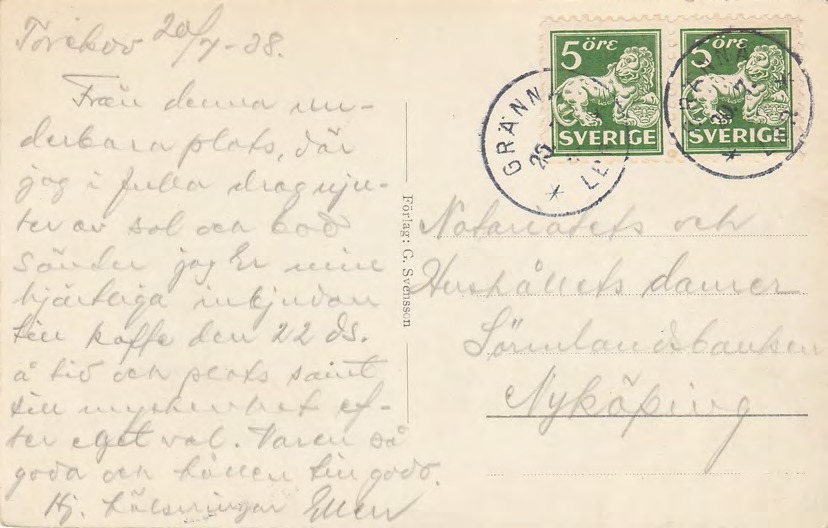 Torekov 20/7-38.
Från denna un-
derbara plats, där
jag i fulla drag nju-
ter av sol och bad
sänder jag Er min
hjärtliga inbjudan
till kaffe den 22 ds.
å tid och plats samt
till myckenhet ef-
ter eget val. Varen så
goda och hållen till godo.
Hj. hälsningar Ellen
Förlag: G. Svensson
5 ÖRE
SVERIGE
5 ÖRE
SVERIGE
GRÄNNA
20
GRÄNNA
20
Notariatets och
Hushållets damer
Sörmlandsbanken
Nyköping